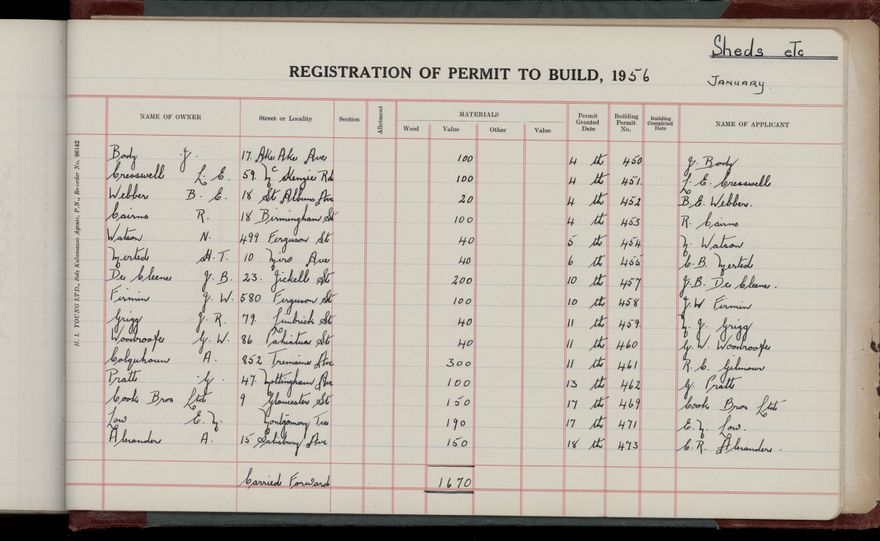 Sheds etc
REGISTRATION OF PERMIT TO BUILD, 1956
JANUARY
NAME OF OWNER Street or Locality Section Allotment MATERIALS Permit Granted Date Building Permit No. Building Completed Date NAME OF APPLICANT
Wood Value Other Value
Body J. 17. Ake Ake Ave 100 4 th 450 J. Body
Cresswell L. E. 59. McKenzie Rd 100 4 th 451 L. E. Cresswell
Webber B. E. 18 St Albans Ave 20 4 th 452 B. E. Webber.
Cairns R. 18 Birmingham St 100 4 th 453 R. Cairns
Watson N. 499 Ferguson St 40 5 th 454 N. Watson
H. T. 10 Miro Ave 40 6 th 455 C. B.
De Cleene J. B. 23. Jickell St 200 10 th 457 J. B. De Cleene.
Firmin J. W. 580 Ferguson St 100 10 th 458 J. W Firmin
Grigg J. R. 79. Limbrick St 40 11 th 459 Grigg
Woodroofe G. W. 86 Pahiatua St 40 11 th 460 G. W. Woodroofe
Colquhoun A. 852 Tremaine Ave 300 11 th 461 R. C. Gilmour
Pratt G. 47. Nottingham Ave 100 13 th 462 G. Pratt
Cooks Bros Ltd 9 Gloucester St 150 17 th 469 Cooks Bros Ltd
Low E. N. Montgomery Tce 190 17 th 471 E. N. Low.
Alexander A. 15 Salisbury Ave 150 18 th 473 C. R. Alexander.
Carried Forward 1670
H. I. YOUNG LTD., Sole Kalamazoo Agents, P.N., Re-order No. 96142